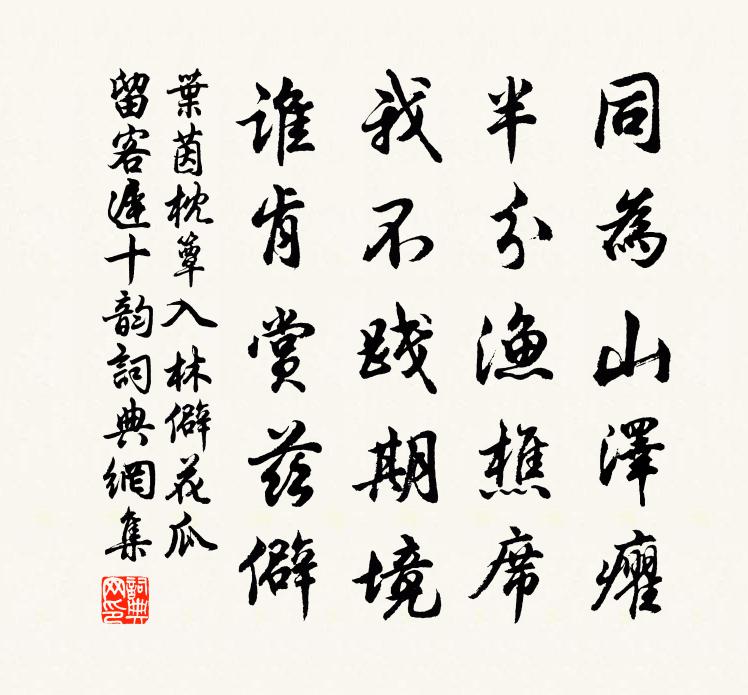 同為山澤癯
半分漁樵席
我不踐期境
誰肯賞茲僻
葉茵枕簟入林僻花瓜
留客遲十韵詞典網集
詞典網印